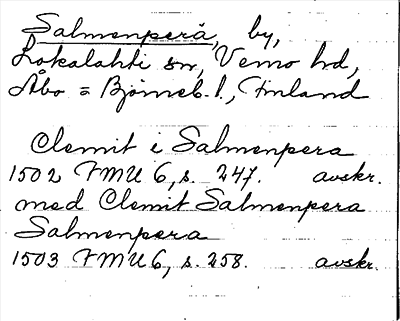 Salmenperä, by,
Lokalahti sn, Vemo hd,
Åbo = Björneb. l., Finland
Clemit i Salmenpera
1502 FMU 6, s. 247. avskr.
med Clemit Salmenpera
Salmenpera
1503 FMU 6, s. 258. avskr.